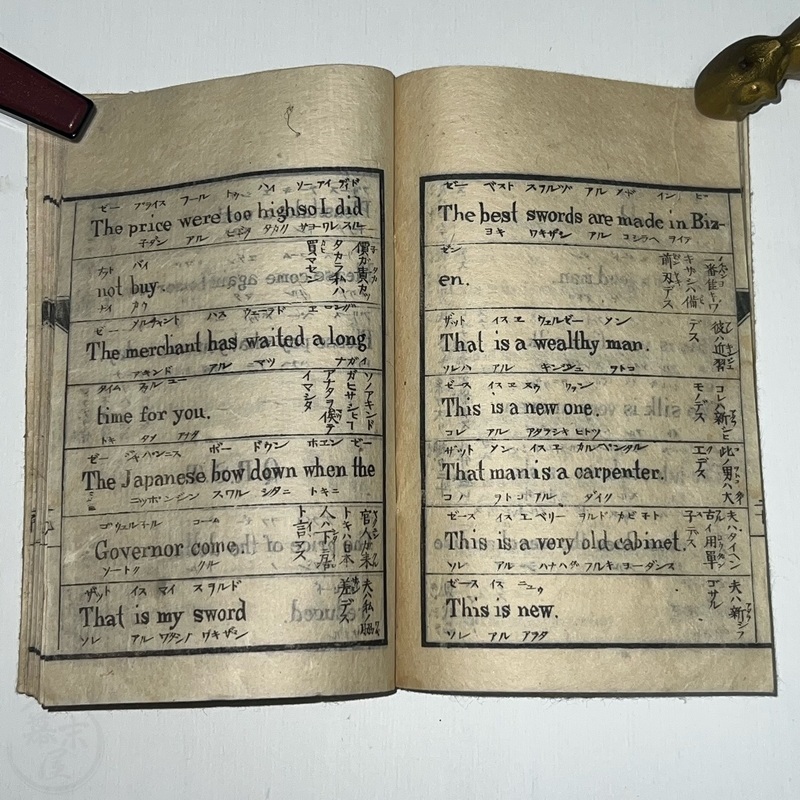 ゼー プライス フール トゥ ハイ ソー アイ ディド
The price were too high so I did
子ダン アル ヒジョ タカク サヨー ワレ スル
ナット バイ
not buy.
ナイ カウ
買マセン
ゼー メルチャント ハス ウェーテッド エ ロング
The merchant has waited a long
アキンド アル マツ ナガイ
タイム フォル ユー
time for you.
トキ タメ アナタ
ソノアキンド
ガヒサシヒー
アナタヲ俟テ
イマシタ
ゼー ジャパニース ボー ドウン ホエン ゼー
The Japanese bow down when the
ニッポンジン スワル シタニ トキニ
ゴヴェルネール コーム
Governor come.
ソートク クル
官人ガ来
トキハ日本
人ハ下ニ居
ト言マス
ザット イス マイ スヲルド
That is my sword
ソレ アル ワタシノ ワキザシ
夫ハ私ノ
差デス
ゼー ベスト スヲルヅ アル メード イン ビ
The best swords are made in Biz-
ヨキ ワキザシ アル コシラヘ
ゼン
en.
キザシハ備
前刃デス
ザット イス エ ウェルゼー メン
That is a wealthy man.
ソレハ アル キンジュ ヲトコ
彼ハ近習
デス
ゼース イス エ ニュウ ワン
This is a new one.
コレ アル アタラシキ ヒトツ
コレハ新シヒ
モノデス
ザット メン イス エ カルペンタル
That man is a carpenter.
コノ ヲトコ アル ダイク
此男ハ大
エデス
ゼース イス エ ベリー ヲルド カビネト
This is a very old cabinet.
ソレ アル ハナハダ フルキ ヨーダンス
夫ハタイヘン
古イ用單
子デス
ゼース イス ニュウ
This is new.
ソレ アル アラタ
夫ハ新シフ
ゴサル